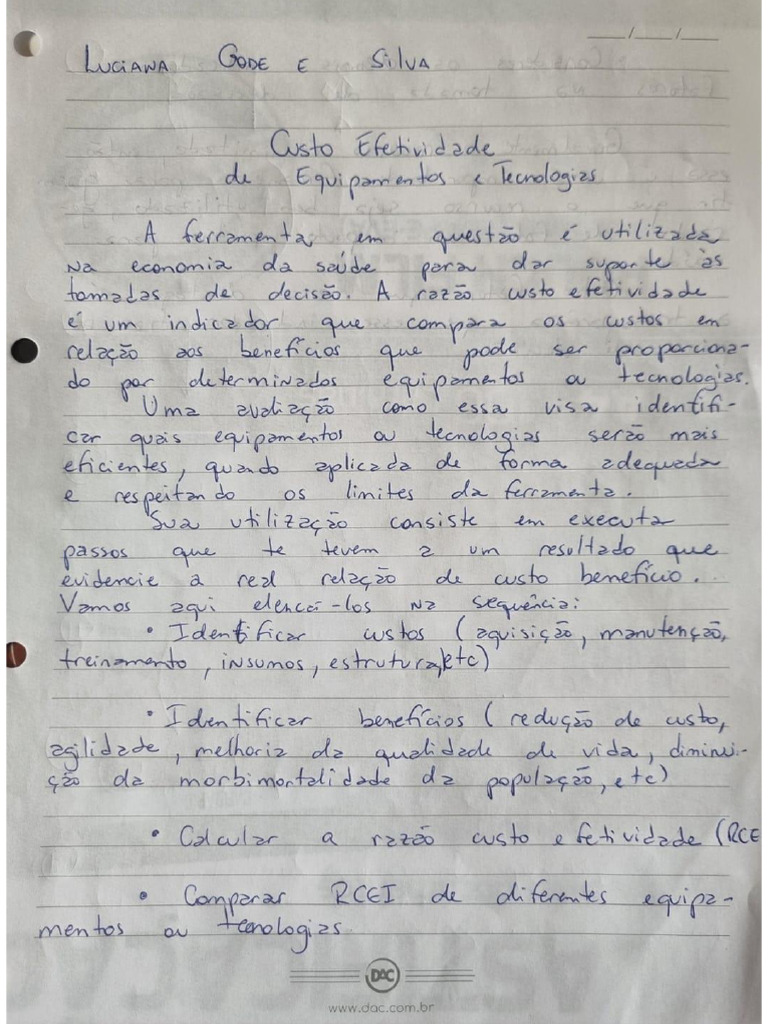 __/__/__
LUCIANA GODE E SILVA
Custo Efetividade
de Equipamentos e Tecnologias
A ferramenta em questão é utilizada
na economia da saúde para dar suporte às
tomadas de decisão. A razão custo efetividade
é um indicador que compara os custos em
relação aos benefícios que pode ser proporciona-
do por determinados equipamentos ou tecnologias.
Uma avaliação como essa visa identifi-
car quais equipamentos ou tecnologias serão mais
eficientes, quando aplicada de forma adequada
e respeitando os limites da ferramenta.
Sua utilização consiste em executa
passos que te levem a um resultado que
evidencie a real relação de custo benefício.
Vamos aqui elencá-los na sequência:
• Identificar custos (aquisição, manutenção,
treinamento, insumos, estrutura, etc)
• Identificar benefícios (redução de custo,
agilidade, melhoria da qualidade de vida, diminui-
ção da morbimortalidade da população, etc)
• Calcular a razão custo efetividade (RCE
• Comparar RCEI de diferentes equipa-
mentos ou tecnologias
DAC
www.dac.com.br